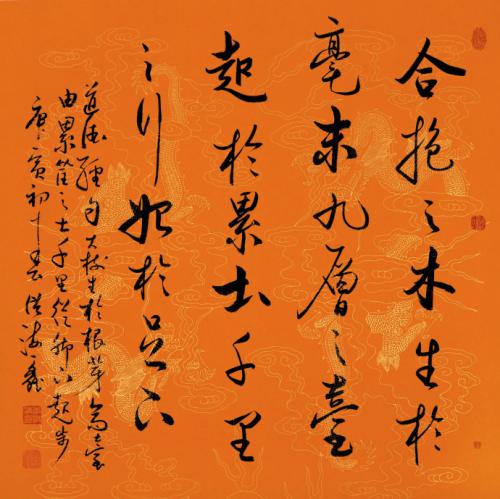 合抱之木生於
毫末九層之臺
起於累土千里
之行始於足下
道德經句大樹生於根芽高臺
由累筐之土千里從脚下起步
庚寅初